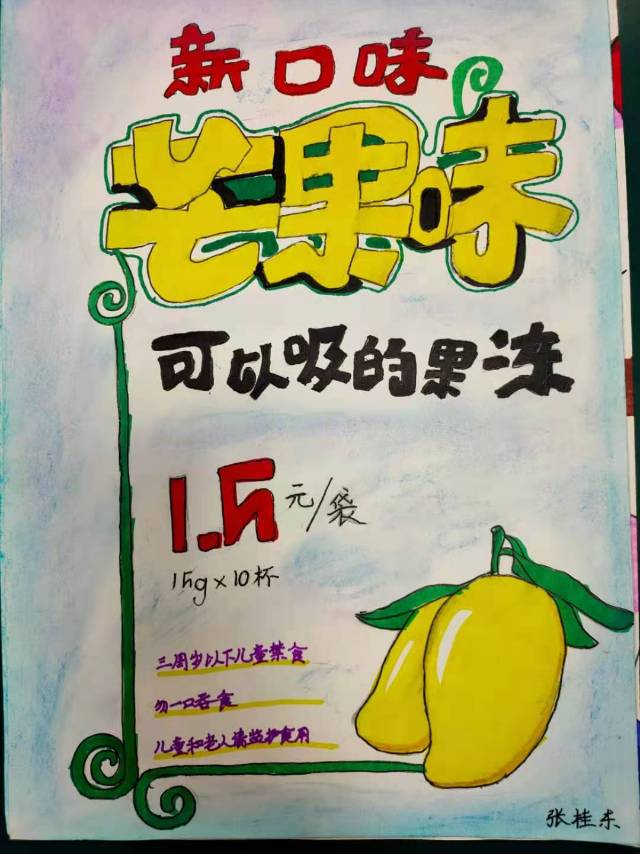 新口味
芒果味
可以吸的果冻
1.5元/袋
15g×10杯
三周岁以下儿童禁食
勿一口吞食
儿童和老人请监护食用
张桂东